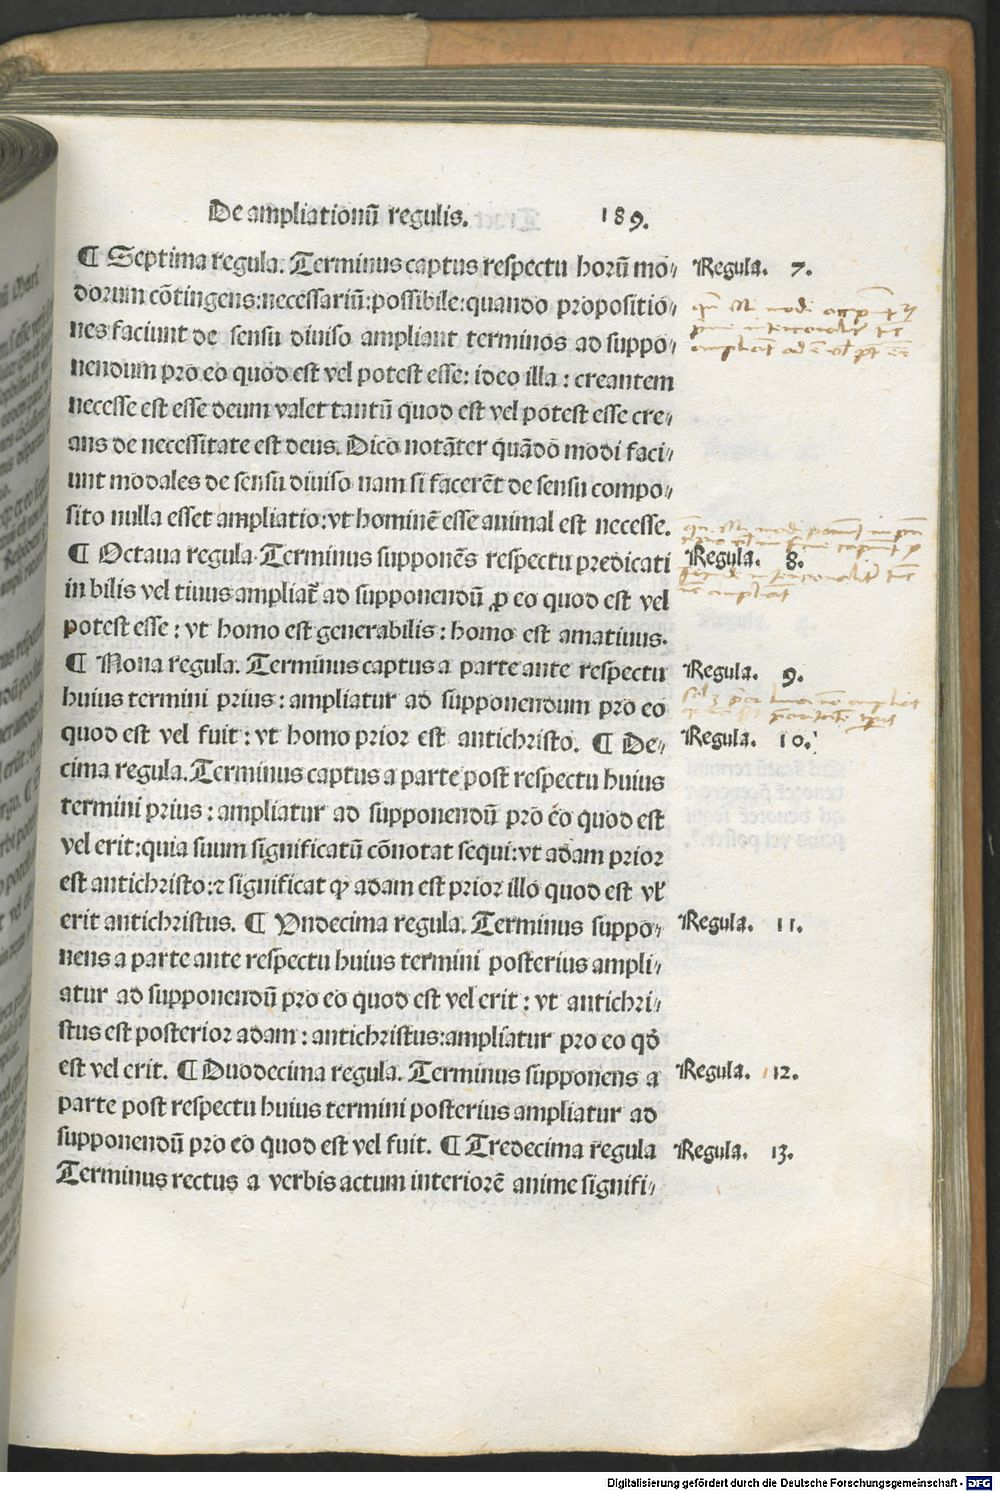 De ampliationū regulis. 189.
¶ Septima regula. Terminus captus respectu horū mo⸗
dorum cōtingens:necessariū:possibile:quando propositio⸗
nes faciunt de sensu diuiso ampliant terminos ad suppo⸗
nendum pro eo quod est vel potest esse: ideo illa : creantem
necesse est esse deum valet tantū quod est vel potest esse cre⸗
ans de necessitate est deus. Dico notāter quādo modi faci⸗
unt modales de sensu diuiso nam si facerēt de sensu compo⸗
sito nulla esset ampliatio:vt hominē esse animal est necesse.
¶ Octaua regula. Terminus supponēs respectu predicati
in bilis vel tiuus ampliat̄ ad supponendū ꝓ eo quod est vel
potest esse : vt homo est generabilis : homo est amatiuus.
¶ Nona regula. Terminus captus a parte ante respectu
huius termini prius : ampliatur ad supponendum pro eo
quod est vel fuit : vt homo prior est antichristo. ¶ De⸗
cima regula. Terminus captus a parte post respectu huius
termini prius : ampliatur ad supponendū pro eo quod est
vel erit:quia suum significatū cōnotat sequi:vt adam prior
est antichristo:⁊ significat ꝙ adam est prior illo quod est vl'
erit antichristus. ¶ Vndecima regula. Terminus suppo⸗
nens a parte ante respectu huius termini posterius ampli⸗
atur ad supponendū pro eo quod est vel erit : vt antichri⸗
stus est posterior adam : antichristus:ampliatur pro eo qđ
est vel erit. ¶ Duodecima regula. Terminus supponens a
parte post respectu huius termini posterius ampliatur ad
supponendū pro eo quod est vel fuit. ¶ Tredecima regula
Terminus rectus a verbis actum interiorē anime signifi⸗
Regula. 7.
Regula. 8.
Regula. 9.
Regula. 10.
Regula. 11.
Regula. 12.
Regula. 13.
Digitalisierung gefördert durch die Deutsche Forschungsgemeinschaft - DFG